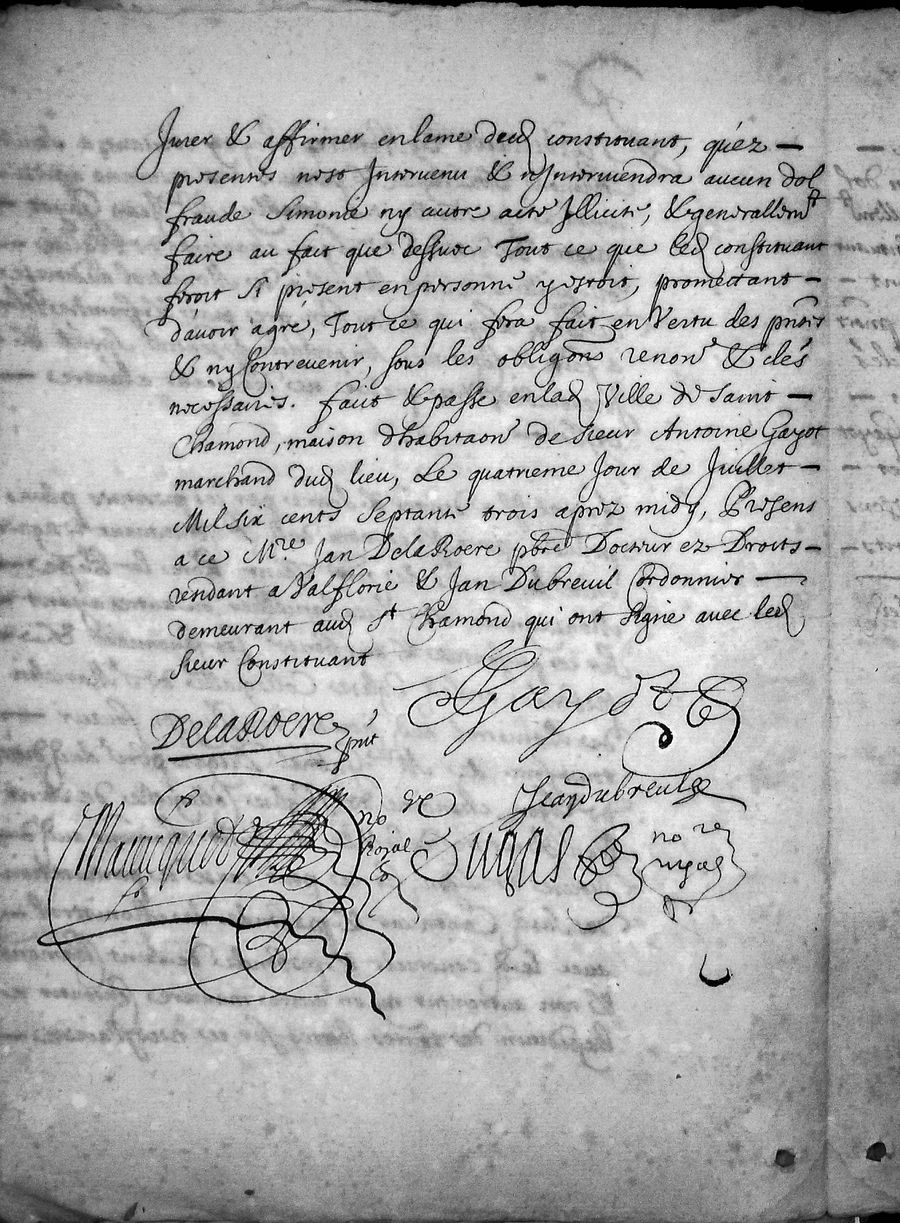 Jurer & affirmer enlame dud constituant, quez —
presentes nest Intervenu & nInterviendra aucun dol
fraude Simonie ny autre acte Illicite, & generallemt
faire au fait que dessus Tout ce que led constituant
feroit Si present en personne y estoit, promettant —
d'avoir agre, Tout ce qui sera fait en Vertu des pntes
& ny Contrevenir, sous les obligons renon & cles
necessaires. faict & passe enlad Ville de Saint —
Chamond, maison dhabitaon de sieur Antoine Gayot
marchand dud lieu, Le quatrieme Jour de Juillet —
Mil six cents Septante trois aprez midy, Presens
a ce Mre Jan DelaRoere pbre Docteur ez Droits —
rendant a Valflorie & Jan Dubreuil Cordonnier —
demeurant aud St Chamond qui ont signe avec led
sieur Constituant
Gayot
DelaRoere pnt
Jean dubreul
no re
Rojal
Dugas no re
royal